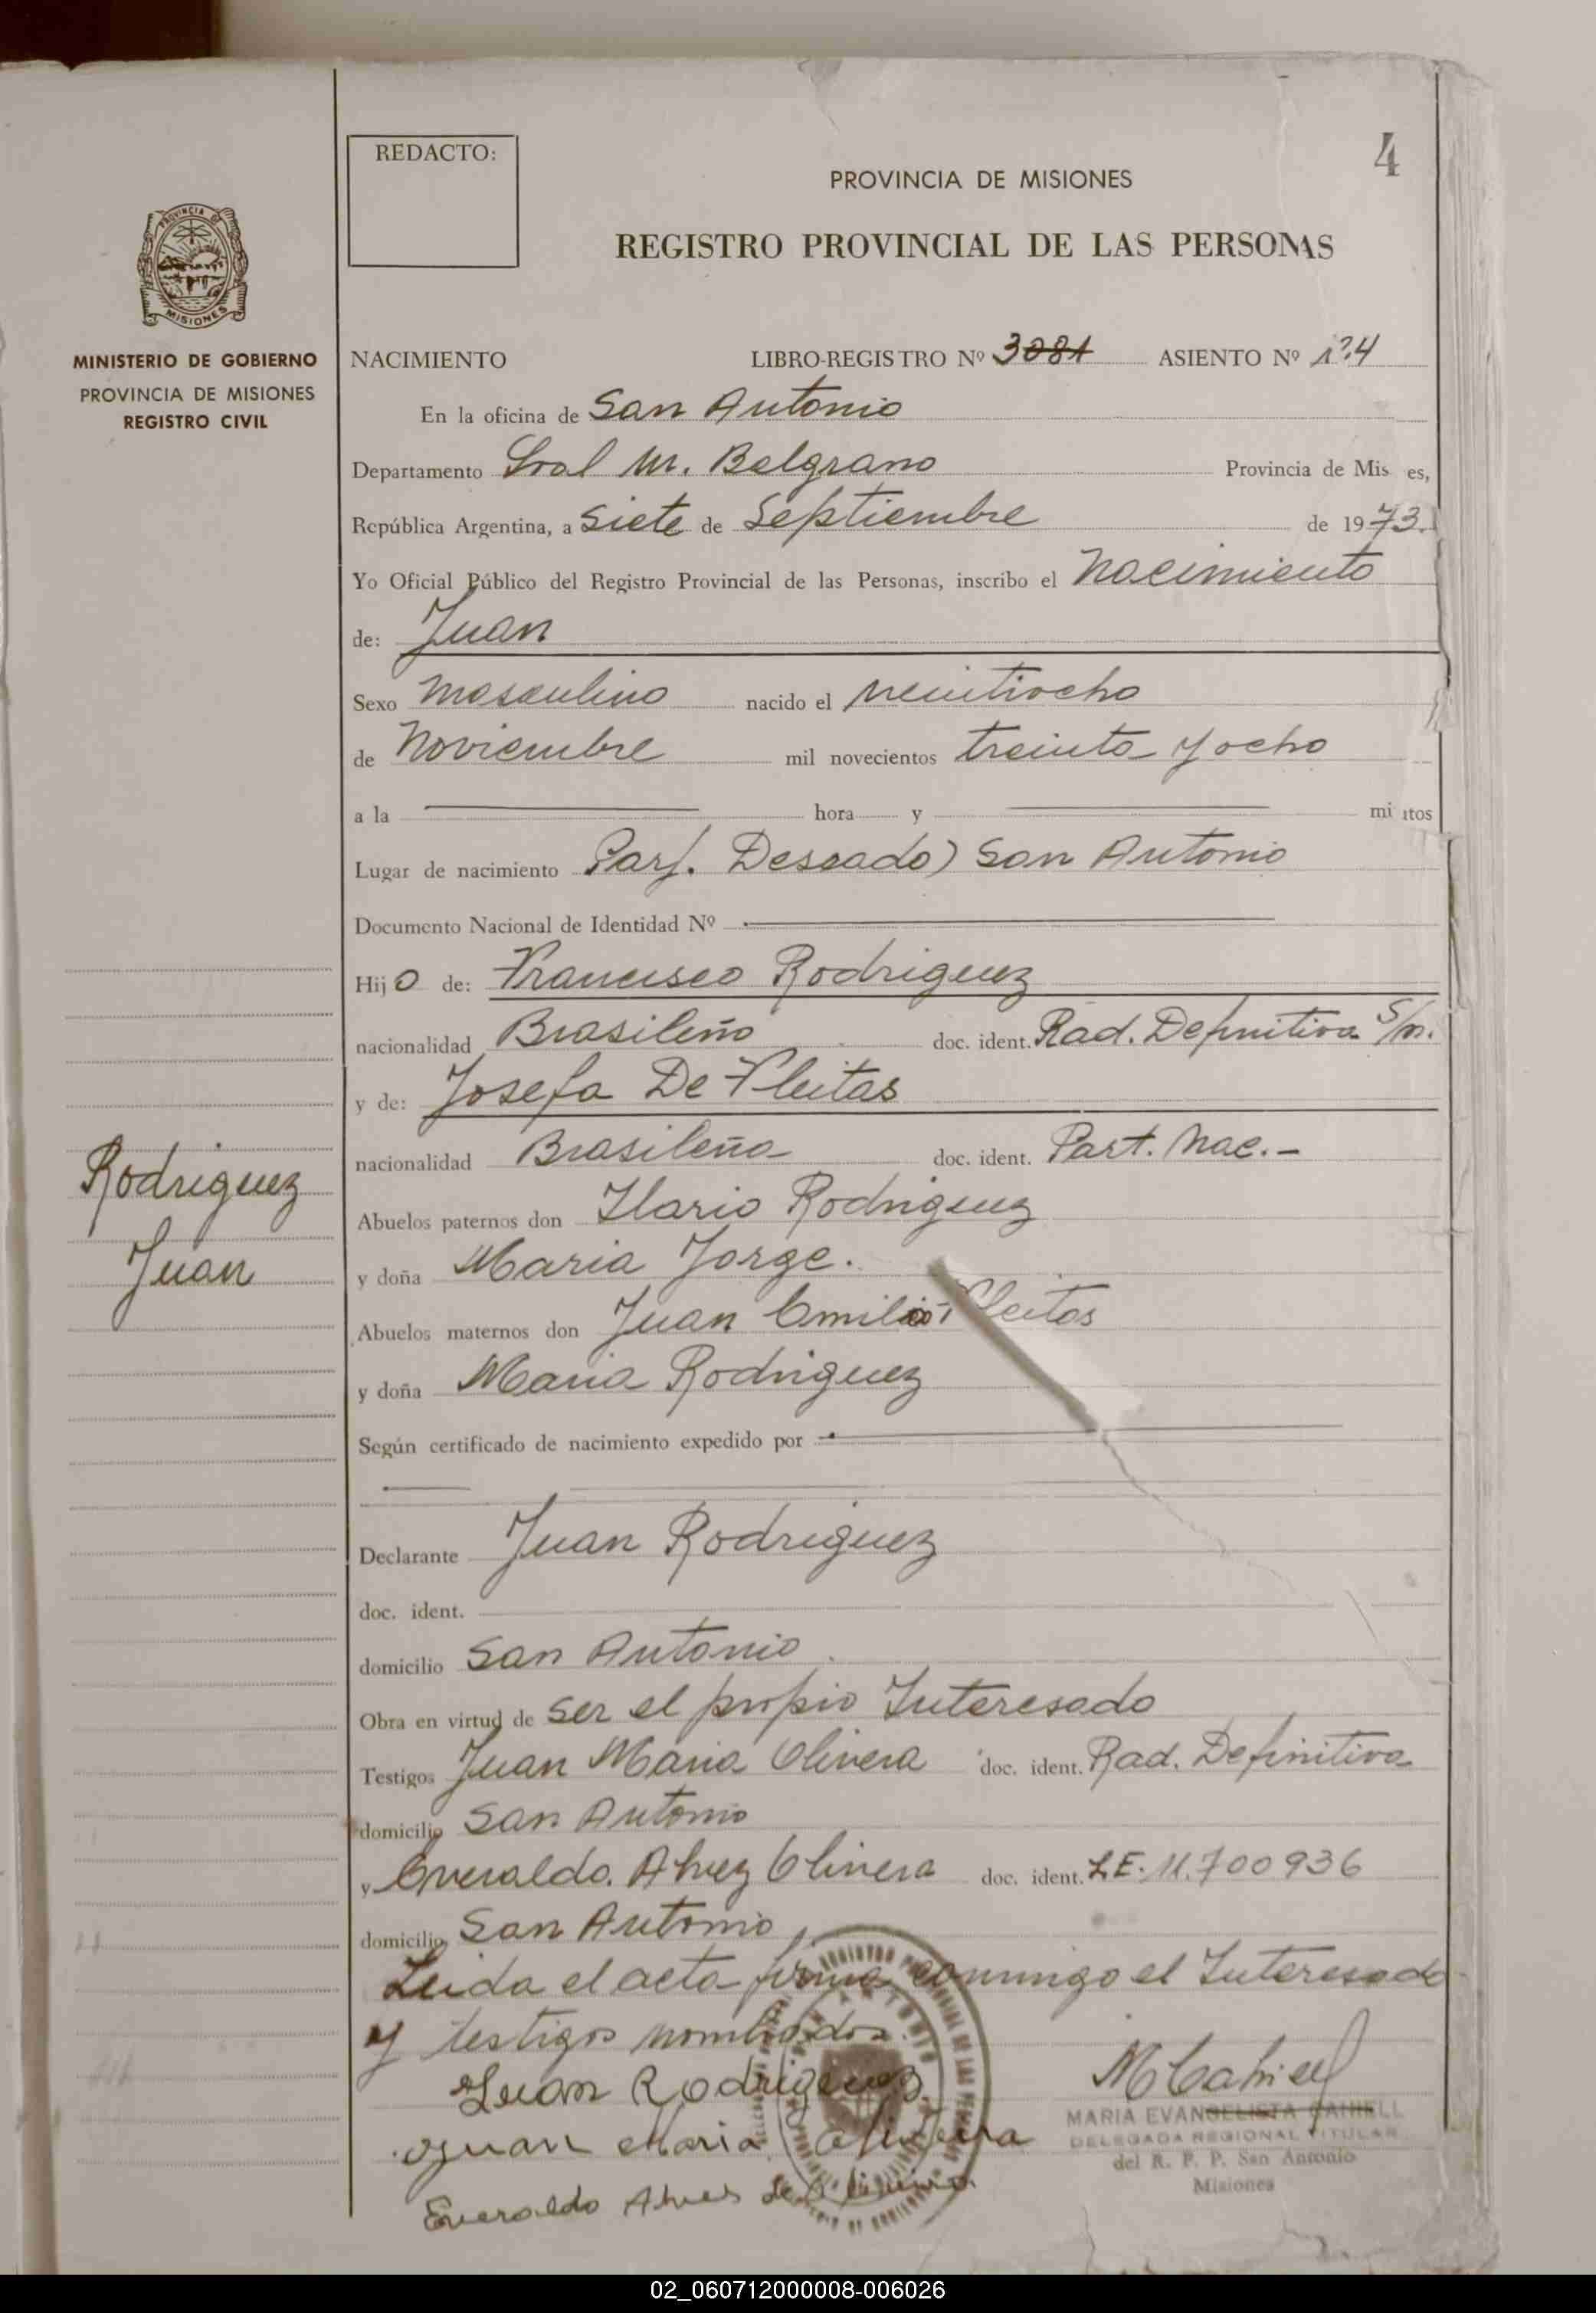 4
REDACTO:
PROVINCIA DE MISIONES
REGISTRO PROVINCIAL DE LAS PERSONAS
PROVINCIA DE
MISIONES
MINISTERIO DE GOBIERNO
PROVINCIA DE MISIONES
REGISTRO CIVIL
NACIMIENTO LIBRO-REGISTRO Nº 3081 ASIENTO Nº 1º.4
En la oficina de San Antonio
Departamento Gral M. Belgrano Provincia de Mis es,
República Argentina, a Siete de Septiembre de 1973.
Yo Oficial Público del Registro Provincial de las Personas, inscribo el Nacimiento
de: Juan
Sexo Masculino nacido el veintiocho
de Noviembre mil novecientos treinta y ocho
a la hora y mi itos
Lugar de nacimiento Parj. Deseado) San Antonio
Documento Nacional de Identidad Nº
Hijo de: Francisco Rodriguez
nacionalidad Brasileño doc. ident. Rad. Definitiva S/n.
y de: Josefa De Fleitas
nacionalidad Brasileña doc. ident. Part. Nac.-
Rodriguez
Juan
Abuelos paternos don Ilario Rodriguez
y doña Maria Jorge.
Abuelos maternos don Juan Emilio Fleitas
y doña Maria Rodriguez
Según certificado de nacimiento expedido por
Declarante Juan Rodriguez
doc. ident.
domicilio San Antonio
Obra en virtud de ser el propio Interesado
Testigos Juan Maria Olivera doc. ident. Rad. Definitiva
domicilio San Antonio
y Everaldo. Alvez Olivera doc. ident. L.E. 11.700936
domicilio San Antonio
Leida el acta firma conmigo el Interesado
y testigos nombrados.
Juan Rodriguez
Juan Maria Oliveira
Everaldo Alves de Oliveira
MCahiell
MARIA EVANGELISTA CAHIELL
DELEGADA REGIONAL TITULAR
del R. P. P. San Antonio
Misiones
02_060712000008-006026